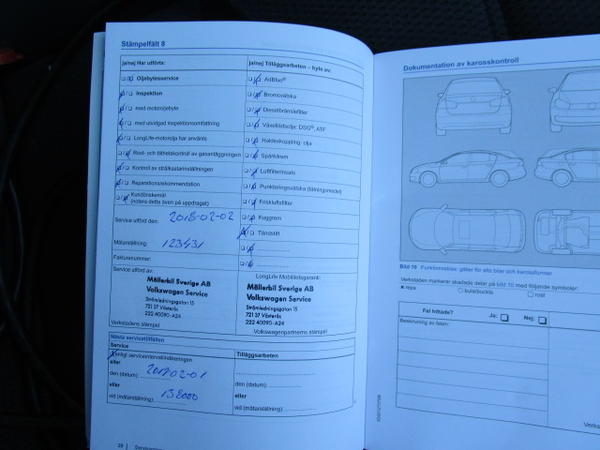 Stämpelfält 8
ja/nej Har utförts:
Oljebytesservice
Inspektion
med motoroljebyte
med utvidgad inspektionsomfattning
LongLife-motorolja har använts
Rost- och täthetskontroll av garantiggningen
Kontroll av strålkastarinställningen
Reparationsrekommendation
Kundönskemål
(notera detta även på uppdraget)
Service utförd den: 2018-02-02
Mätarställning: 123431
Fakturanummer:
Service utförd av:
Möllerbil Sverige AB
Volkswagen Service
Strömledningsgatan 5
721 37 Västerås
222 40090-A24
Verkstadens stämpel
ja/nej Tilläggsarbeten – byte av:
AdBlue®
Bromsvätska
Dieselbränslefilter
Växellådsolja: DSG®, ASF
Haldexkoppling: olja
Spårkörem
Luftfilterinsats
Punkteringsvätska (tätningsmedel)
Friskluftsfilter
Kuggrem
Tändstift
LongLife Mobilitetsgaranti:
Möllerbil Sverige AB
Volkswagen Service
Strömledningsgatan 5
721 37 Västerås
222 40090-A24
Volkswagenpartnerns stämpel
Nästa servicetillfällen
Service
Enligt serviceintervallindikeringen
eller
den (datum)
eller
vid (mätarställning) 138000
Tilläggsarbeten
den (datum)
eller
vid (mätarställning)
Dokumentation av karosskontroll
Bild 10 Funktionsbild: gäller för alla bilar och karossformer
Verkstaden markerar skadade delar på bild 10 med följande symboler:
× repa
○ bula/buckla
□ rost
Fel hittade?
Ja:
Nej:
Beskrivning av felen: